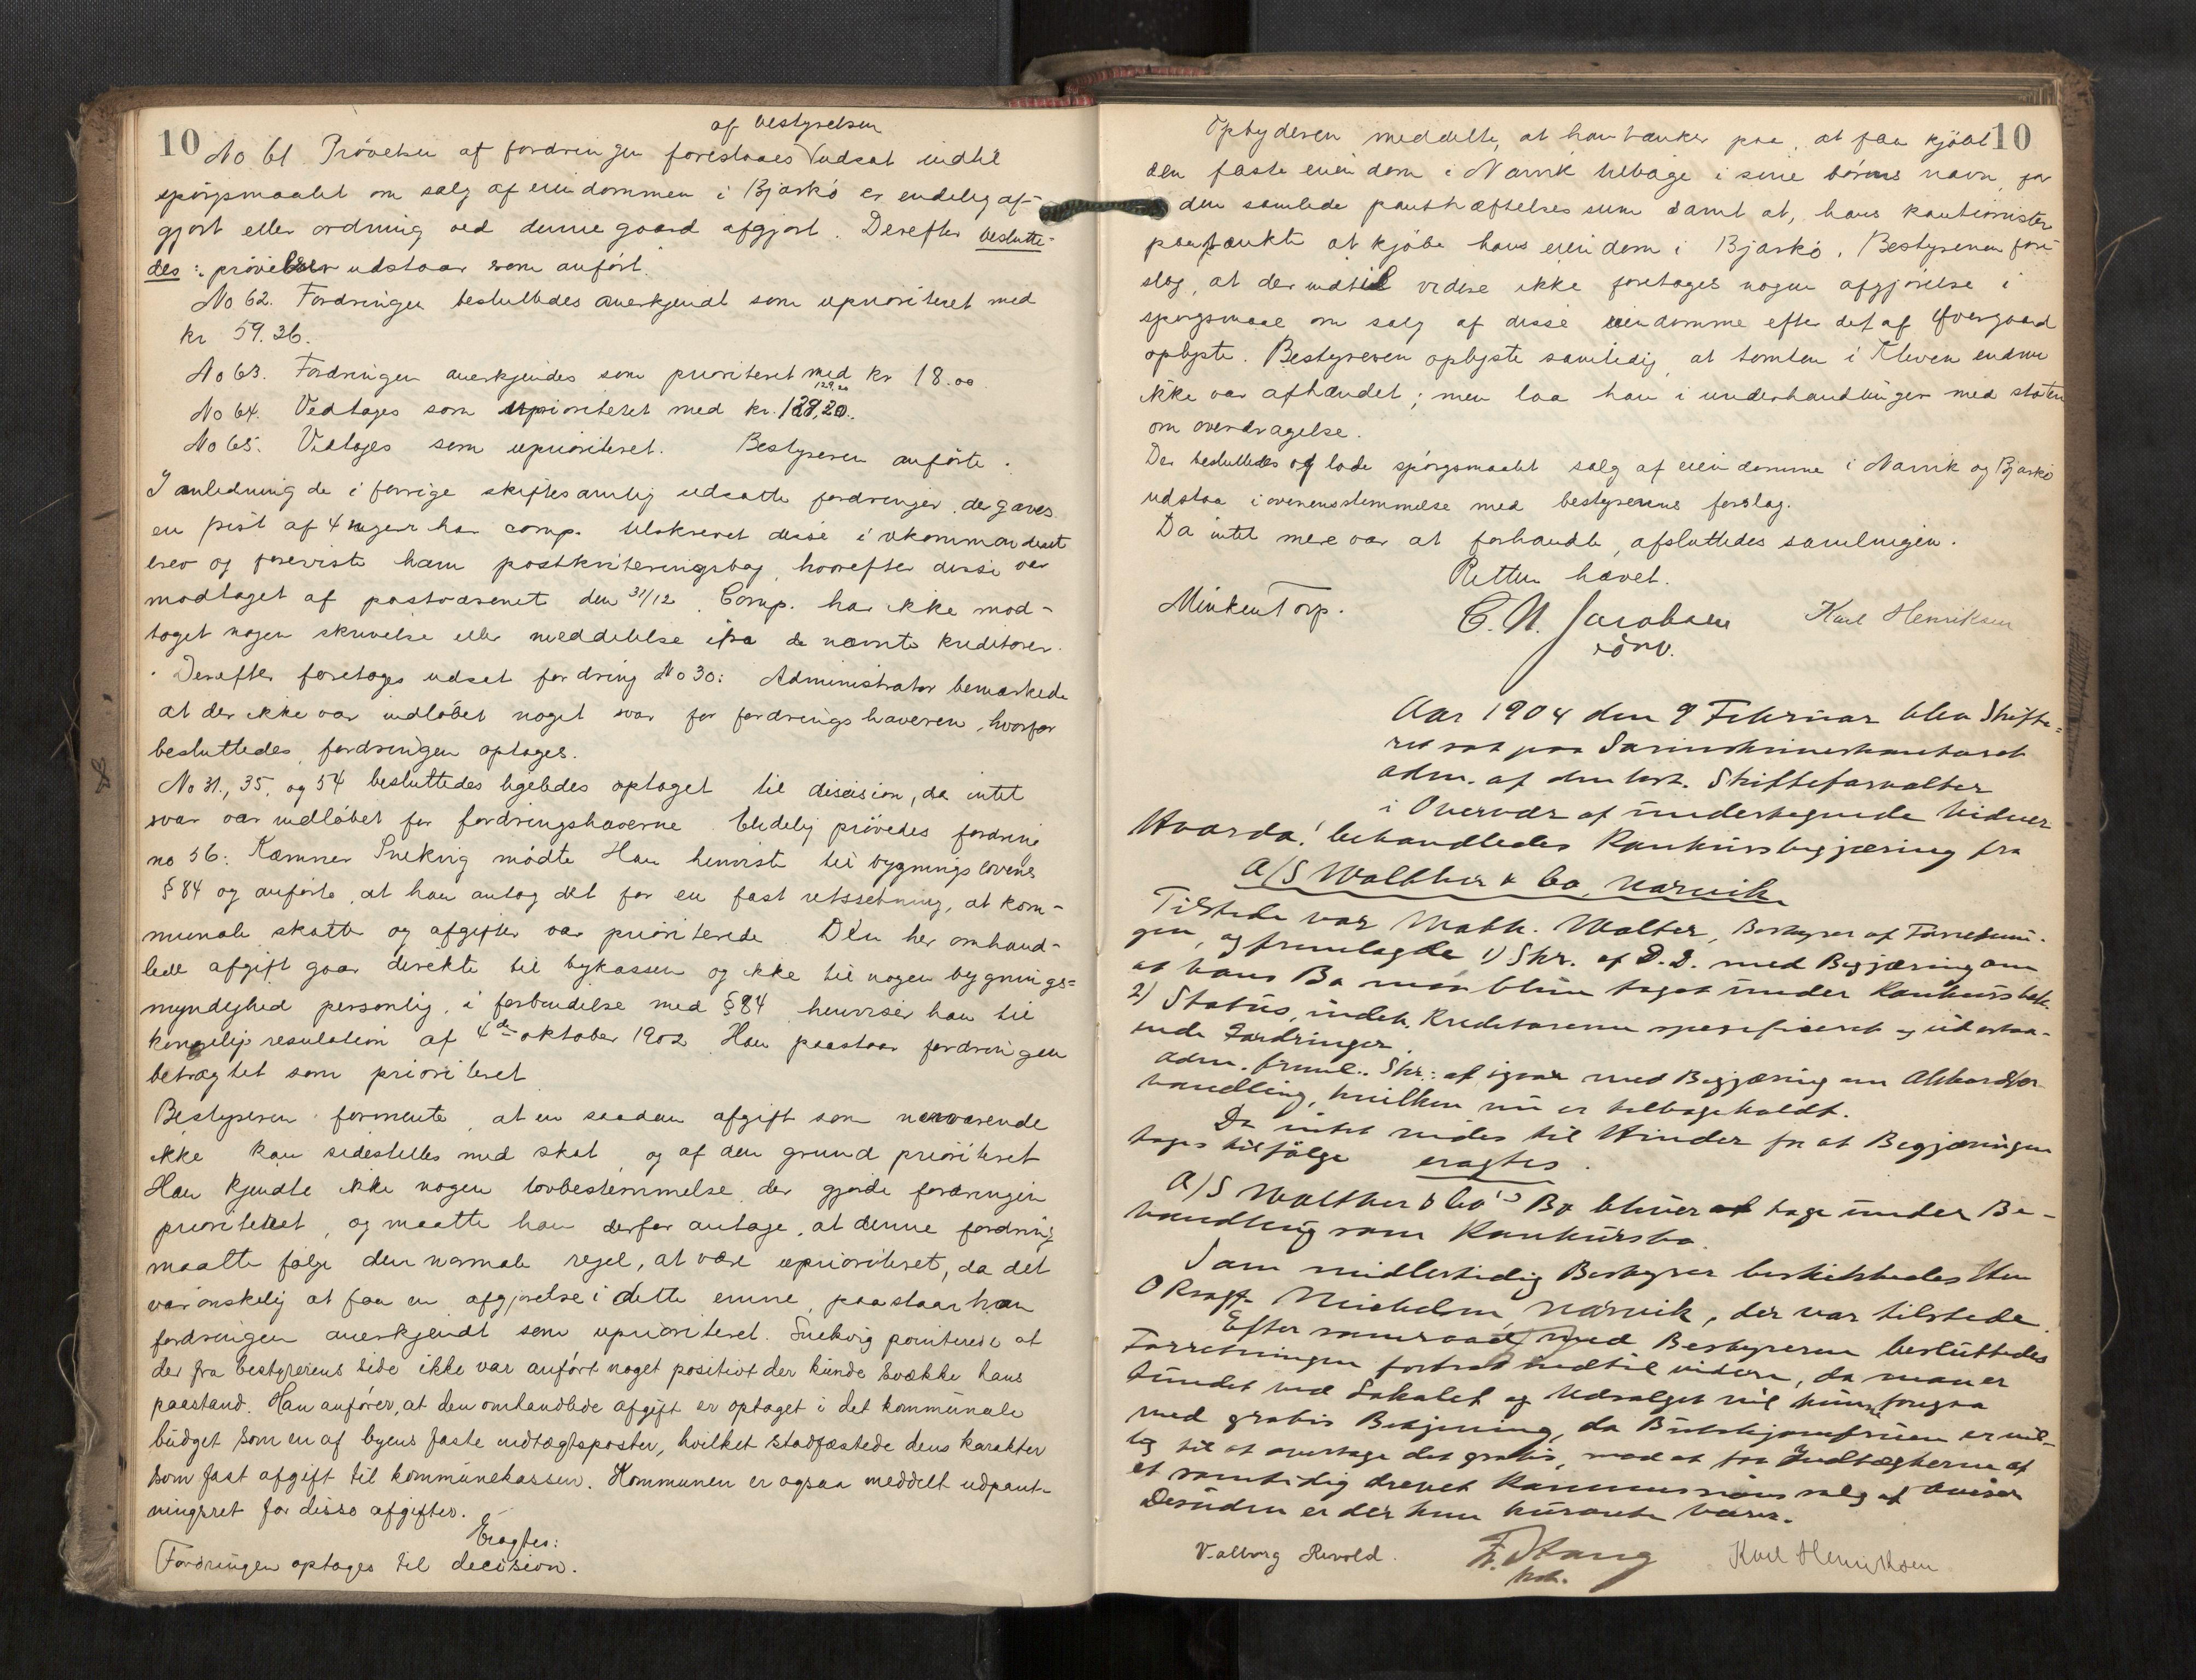 10
af bestyrelsen
No 61 Prøvelsen af fordringen foreslaaes udsat indtil
spørgsmaalet om salg af eiendommen i Bjarkø er endelig af-
gjort eller ordning ved denne gaard afgjort. Derefter beslutte-
des: prøvelsen udstaar som anført.
No 62. Fordringen besluttedes anerkjendt som uprioriteret med
kr 59.36.
No 63. Fordringen anerkjendes som prioriteret med kr 18.00.
129.20
No 64. Vedtages som uprioriteret med kr. 129,20.
No 65. Vedtages som uprioriteret. Bestyreren anførte:
I anledning de i forrige skiftesamling udsatte fordringer, der gaves
en frist af 4 uger har comp. tilskrevet disse i rekommanderet
brev og foreviste ham postkvitteringsbog, hvorefter disse var
modtaget af postvæsenet den 31/12. Comp. har ikke mod-
taget nogen skrivelse eller meddelelse ifra de nævnte kreditorer.
Derefter foretoges udsat fordring No 30: Administrator bemærkede
at der ikke var indløbet noget svar for fordringshaveren, hvorfor
besluttedes, fordringen optages.
No 31., 35, og 54 besluttedes ligeledes optaget til decision, da intet
svar var indløbet for fordringshaverne. Endelig prøvedes fordring
no 56: Kæmner Snekvig mødte Han henviste til bygningslovens
§ 84 og anførte, at han antog det for en fast retssetning, at kom-
munale skatte og afgifter var prioriterede Den her omhand-
lede afgift gaar direkte til bykassen og ikke til nogen bygnings-
myndighed personlig, i forbindelse med § 84 henviser han til
kongelig resulation af 4de oktober 1902. Han paastaar fordringen
betragtet som prioriteret
Bestyreren formente, at en saadan afgift som nærværende
ikke kan sidestilles med skat, og af den grund prioriteret
Han kjendte ikke nogen lovbestemmelse, der gjorde fordringen
prioriteret, og maatte han derfor antage, at denne fordring
maatte følge den normale regel, at være uprioriteret, da det
var ønskelig at faa en afgjørelse i dette emne, paastaar han
fordringen anerkjendt som uprioriteret. Snekvig pointerede at
der fra bestyrerens side ikke var anført noget positivt der kunde svække hans
paastand. Han anfører, at den omhandlede afgift er optaget i det kommunale
budget som en af byens faste indtægtsposter, hvilket stadfæstede dens karakter
som fast afgift til kommunekassen. Kommunen er ogsaa meddelt udpant-
ningsret for disse afgifter.
Eragtes:
Fordringen optages til decision.
10
Opbyderen meddelte, at han tænker paa, at faa kjøbt
den faste eiendom i Narvik tilbage i sine børns navn, for
den samlede pantheftelses sum samt at, hans kautionister
paatænkte at kjøbe hans eiendom i Bjarkø. Bestyreren fore-
slog, at der indtil videre ikke foretages nogen afgjørelse i
spørgsmaal om salg af disse eiendomme efter det af Øvergaard
oplyste. Bestyreren oplyste samtidig, at tomten i Kleven endnu
ikke var afhændet; men laa han i underhandlinger med staten
om overdragelse.
Der besluttedes at lade spørgsmaalet salg af eiendomme i Narvik og Bjarkø
udstaa i overensstemmelse med bestyrerens forslag.
Da intet mere var at forhandle, afsluttedes samlingen.
Retten hævet.
Minken Torp. C. N. Jacobsen Karl Henriksen
Aar 1904 den 9 Februar blev Skifte-
ret sat paa Sorenskriverkontoret
adm. af den kst. Skifteforvalter
i Overvær af undertegnede Vidner
Hvorda! behandledes Konkursbegjæring fra
A/S Walther & Co, Narvik
Tilstede var Math. Walter, Bestyrer af Forretnin-
gen, og fremlagde 1) Skr. af D.D. med Begjæring om
at hans Bo maa blive taget under Konkursbeh.
2) Status, indeh. Kreditorerne specificeret og udestaa-
ende Fordringer.
Adm. freml. Skr.: af igaar med Begjæring om Akkordfor-
handling, hvilken nu er tilbagekaldt.
Da intet vides til Hinder for at Begjæringen
tages tilfølge eragtes.
A/S Walther & Co's Bo bliver at tage under Be-
handling som Konkursbo.
Som midlertidig Bestyrer beskikkedes Hr
O Rragf. Michelsen, Narvik, der var tilstede.
Efter samraad med Bestyreren besluttedes
Forretningen fortsat indtil videre, da man er
bundet ved Lokalet og Udsalget vil kunne foregaa
med gratis Betjening, da Butikjomfruen er vil-
lig til at overtage det gratis, mod at faa Indtægterne af
et samtidig drevet Kommissions salg af aviser
Desuden er der kun kurante varer.
Valborg Revold. Fr. Stang Karl Henriksen
kst.